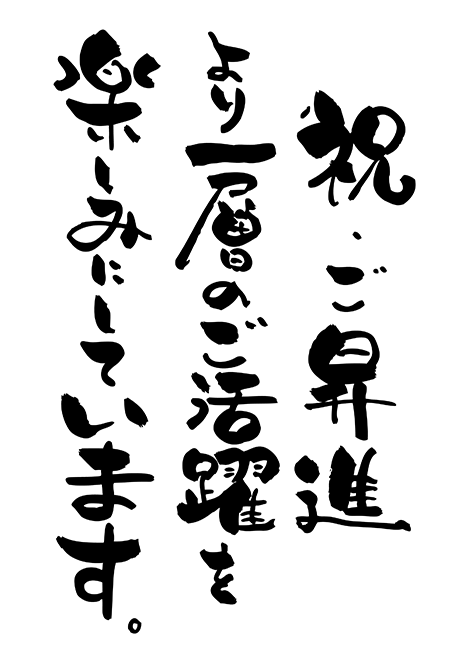 祝・ご昇進
より一層のご活躍を
楽しみにしています。